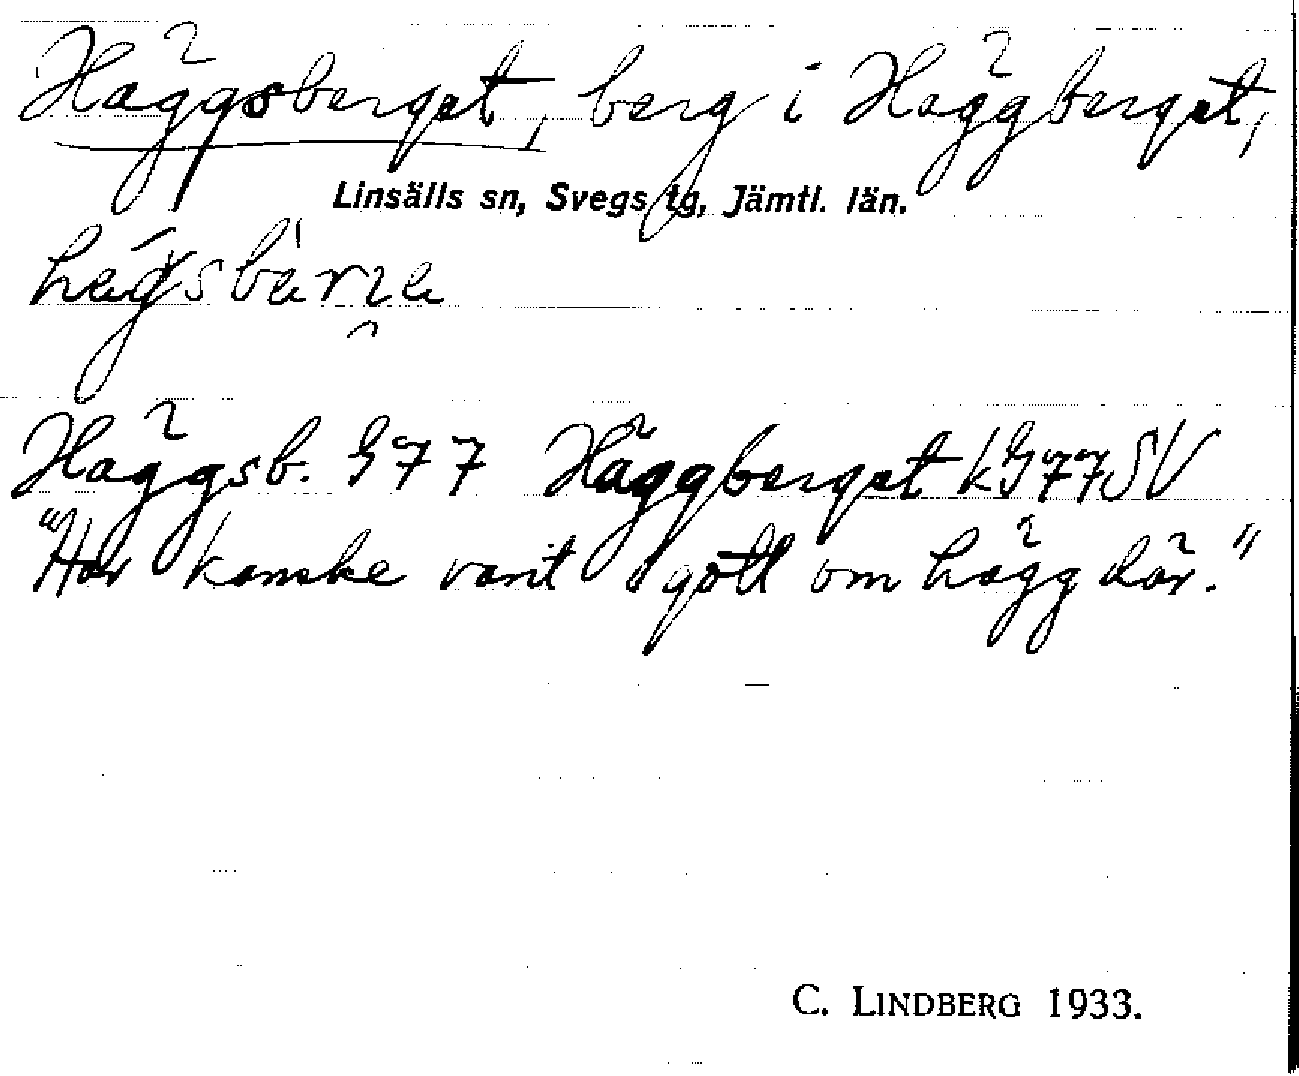 Häggsberget, berg i Häggberget,
Linsälls sn, Svegs tg, Jämtl. län.
Häggsb. G77 Häggberget kG77SV
"Har kanske varit gott om hägg där."
C. LINDBERG 1933.